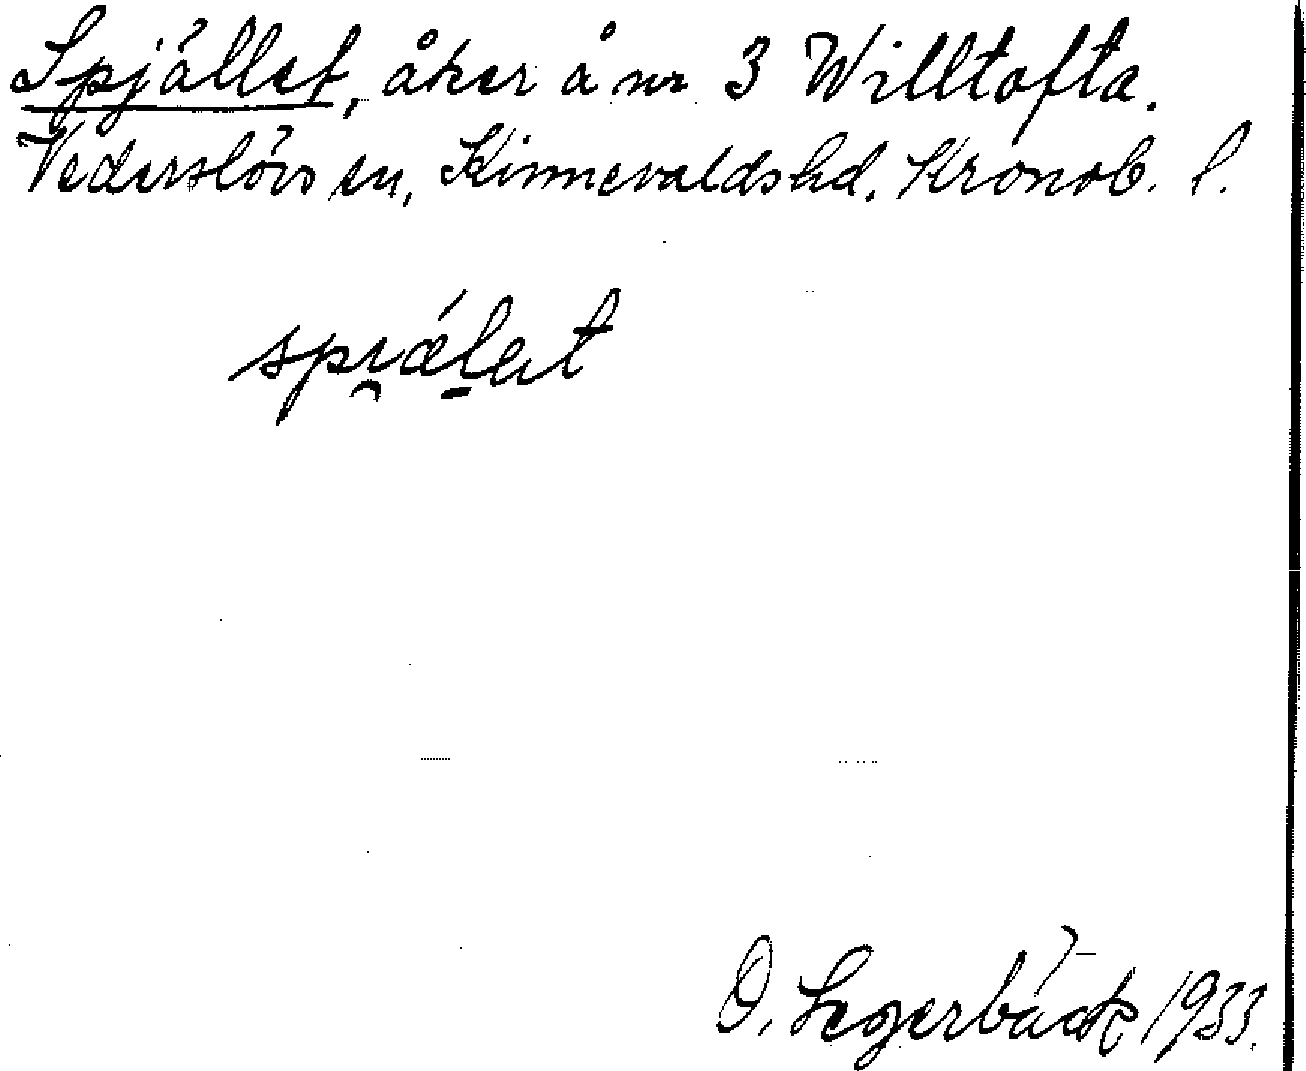 Spjället, åker å nr 3 Willtofta.
Vederslövs sn, Kinnevalds hd. Kronob. l.
spi̯ǽl̠ət
O. Segerbäck 1933.